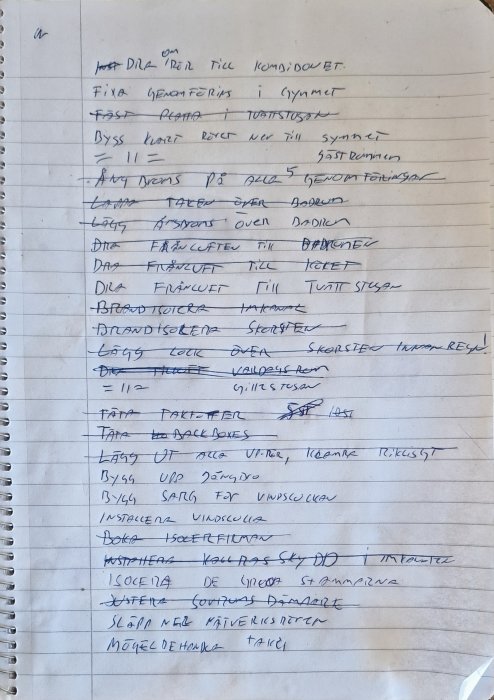 DRA OM RÖR TILL KOMBIDONET.
FIXA GENOMFÖRING I GYMMET
FÄST PLATTA I TVÄTTSTUGAN
BYGG KLART RÖRET NER TILL GYMMET
= 11 = GÄSTRUMMEN
ÅNGBROMS PÅ ALLA 5 GENOMFÖRINGAR
TAKEN ÖVER BADRUM
LÄGG ÅNGBROMS ÖVER BADRUM
DRA FRÅNLUFTEN TILL BADRUMEN
DRA FRÅNLUFT TILL KÖKET
DRA FRÅNLUFT TILL TVÄTTSTUGAN
BRANDISOLERA IMKANAL
BRANDISOLERA SKORSTEN
LÄGG LOCK ÖVER SKORSTEN INNAN REGN!
DRA TILLUFT VARDAGSRUM
= 11 = GILLESTUGAN
TÄTA
TÄTA BACKBOXES
LÄGG UT ALLA VP-RÖR, KLAMRA RIKLIGT
BYGG UPP
BYGG SARG FÖR VINDSLUCKAN
INSTALLERA VINDSLUCKA
BOKA ISOLERFIRMAN
INSTALLERA KALLRASSKYDD I
ISOLERA DE GRÖNA STAMMARNA
JUSTERA SOVRUMS DÄMPARE
SLÄPP NER NÄTVERKS
MÖGELBEHANDLA TAKET